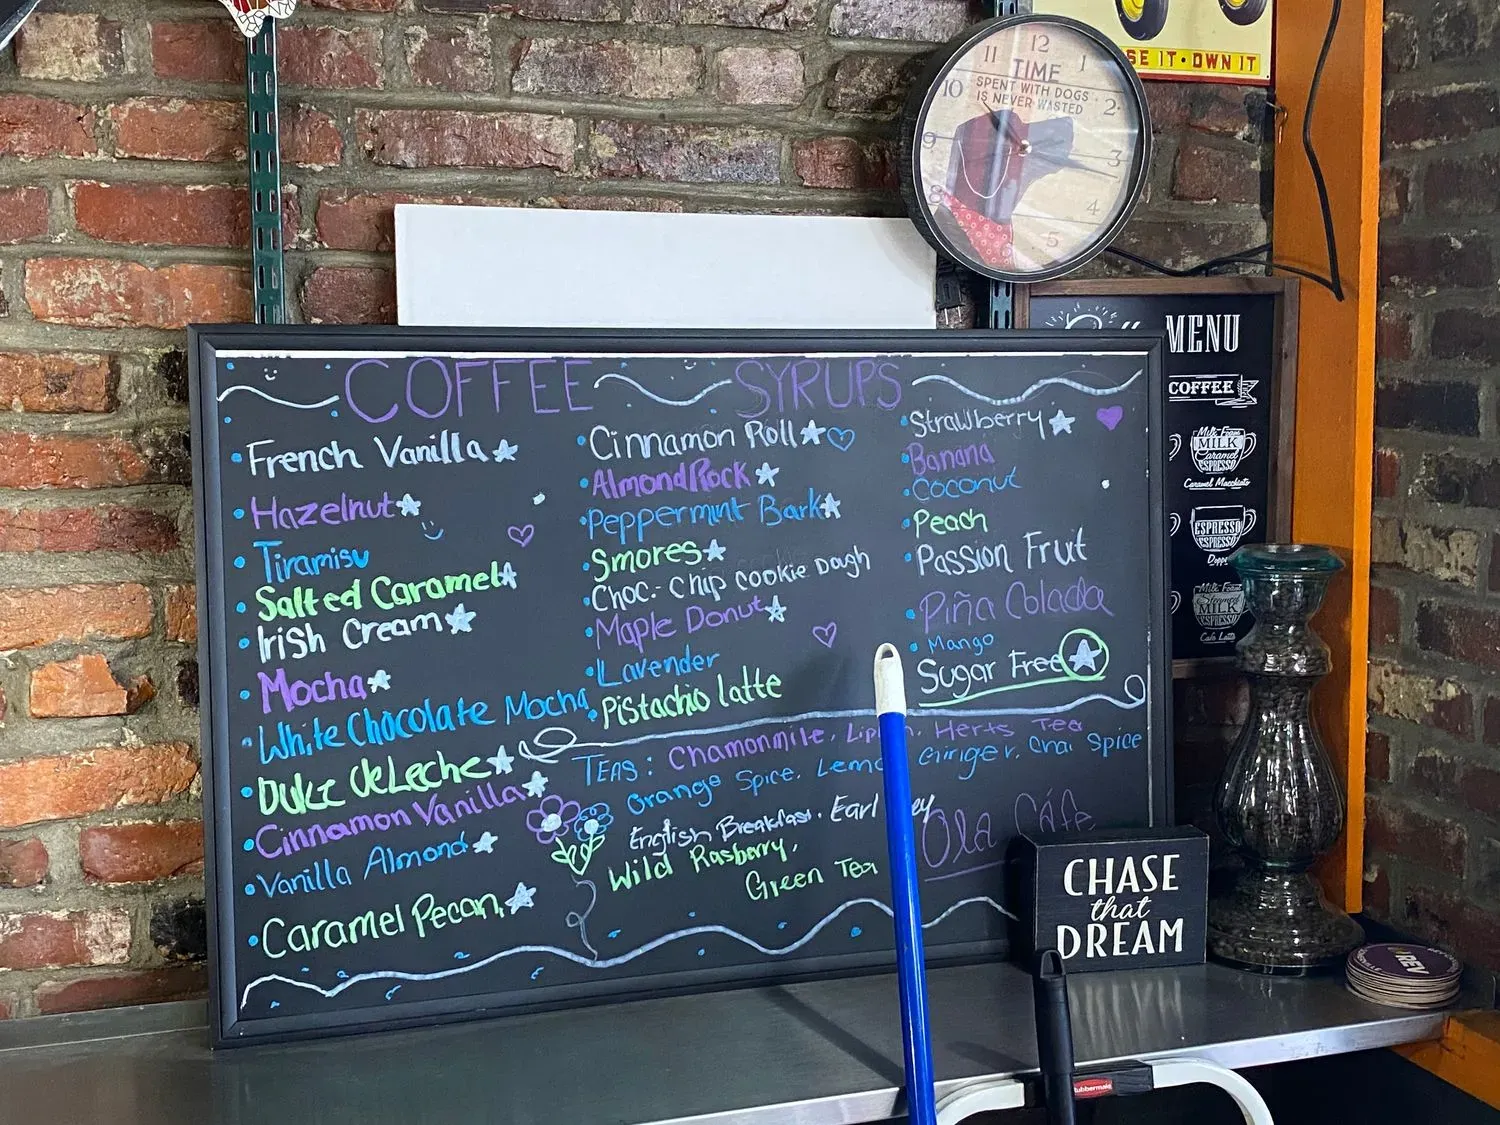 SE IT • OWN IT
12
11
1
10
TIME
SPENT WITH DOGS
IS NEVER WASTED
2
9
3
8
4
5
MENU
COFFEE
Milk Foam
MILK
Caramel
ESPRESSO
Caramel Macchiato
ESPRESSO
Milk Foam
Steamed
MILK
Cafe Latte
COFFEE SYRUPS
French Vanilla
Hazelnut
Tiramisu
Salted Caramel
Irish Cream
Mocha
White Chocolate Mocha
Dulce deLeche
Cinnamon Vanilla
Vanilla Almond
Caramel Pecan
Cinnamon Roll
Almond Rock
Peppermint Bark
Smores
Choc. Chip Cookie Dough
Maple Donut
Lavender
Pistachio latte
Strawberry
Banana
Coconut
Peach
Passion Fruit
Piña Colada
Mango
Sugar Free
TEAS: Chamonmile, Herts Tea
Orange Spice, Ginger, Chai Spice
English Breakfast, Earl
Wild Rasbarry,
Green Tea
Ola Cáfe
CHASE
that
DREAM
REV
Rubbermaid